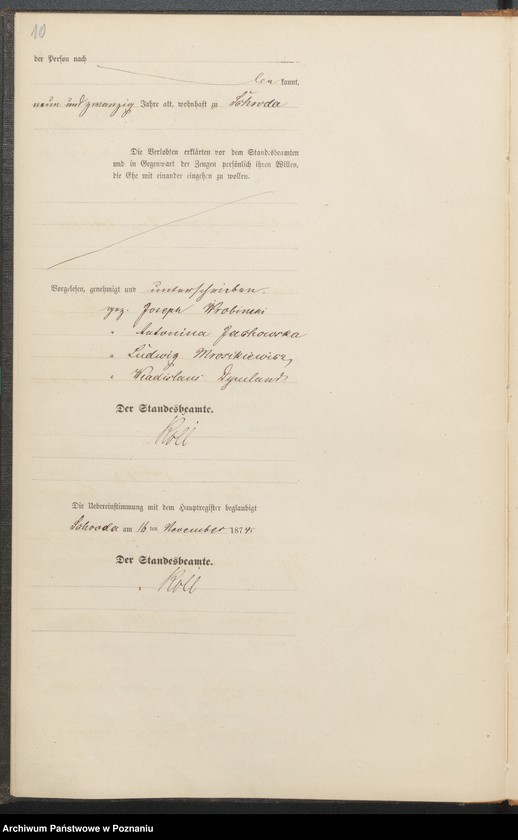 10
der Person nach
kannt,
neun und zwanzig Jahre alt, wohnhaft zu Schroda
Die Verlobten erklärten vor dem Standesbeamten
und in Gegenwart der Zeugen persönlich ihren Willen,
die Ehe mit einander eingehen zu wollen.
Vorgelesen, genehmigt und unterschrieben.
gez. Joseph
" Antonina
" Ludwig
"
Der Standesbeamte.
Koll
Die Uebereinstimmung mit dem Hauptregister beglaubigt
Schroda am 16 ten November 1874.
Der Standesbeamte.
Koll
Archiwum Państwowe w Poznaniu